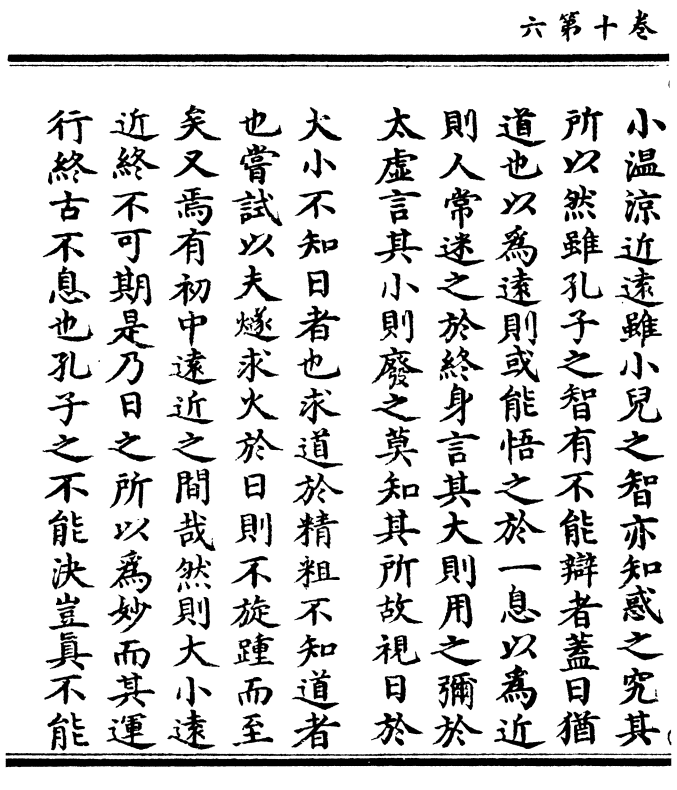 卷十第六
小温涼近遠雖小兒之智亦知惑之究其
所以然雖孔子之智有不能辯者蓋日猶
道也以爲遠則或能悟之於一息以爲近
則人常迷之於終身言其大則用之彌於
太虛言其小則廢之莫知其所故視日於
大小不知日者也求道於精粗不知道者
也嘗試以夫燧求火於日則不旋踵而至
矣又焉有初中遠近之間哉然則大小遠
近終不可期是乃日之所以爲妙而其運
行終古不息也孔子之不能決豈眞不能